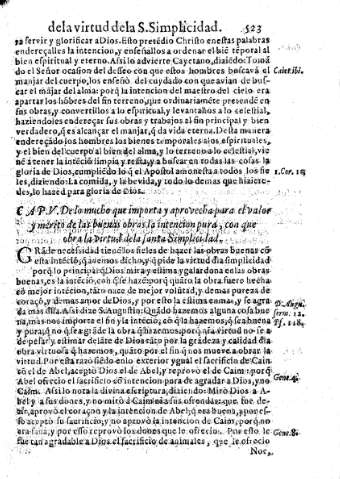 de la virtud de la S. Simplicidad. 523
ra servir y glorificar a Dios. Esto pretēdio Christo en estas palabras
endereçalles la intencion, y enseñallos a ordenar el biē tēporal al
bien espiritual y eterno. Assi lo advierte Cayetano, diziēdo: Tomā
do el Señor ocasion del desseo con que estos hombres buscavā el
manjar del cuerpo, los enseñò del cuydado con que avian de bus-
car el mājar del alma: porq̄ la intencion del maestro del cielo era
apartar los hōbres del fin terreno, que ordinariamēte pretendē en
sus obras, y convertillos a lo espiritual, y levantahos a lo celestial,
haziendoles endereçar sus obras y trabajos al fin principal y bien
verdadero, q̄ es alcançar el manjar, q̄ da vida eterna. Desta manera
endereçādo los hombres los bienes temporales a los espirituales,
y el bien del cuerpo al bien del alma, y lo terreno a lo celestial, vie
nē a tener la intēciō limpia y resta, y a buscar en todas las cosas la
gloria de Dios, cumpliēdo lo q̄ el Apostol amonesta a todos los fie
les, diziendo: La comida, y la bevida, y todo lo demas que hiziere-
des, lo hazed para gloria de Dios.
Caiet. ibi.
1. Cor. 10
CAP. V. De lo mucho que importa y aprovecha para el valor
y merito de las buenas obras la intencion pura, con que
obra la virtud de la santa Simplicidad.
GRāde necessidad tienē los fieles de hazer las obras buenas cō
esta intēciō, q̄ avemos dicho, y q̄ pide la virtud d̄la simplicidad
porq̄ lo principal q̄ Dios mira y estima y galardona en las obras
buenas, es la intēciō, con q̄ se hazē porq̄ quāto la obra fuere hecha
cō mejor intēcion, tāto nace de mejor volūtad, y de mas pureza de
coraçō, y de mas amor de Dios, y por esto la estima en mas, y se agra
da mas d̄lla. Assi dize S. Augustin: Quādo hazemos alguna cosa bue
na, mas nos importa el fin y la intēciō, cō q̄ la hazemos, q̄ sea buena
y pura, q̄ no q̄ se agrāde la obra q̄ hazemos, porq̄ n̄ra virtud no se a
de pesar y estimar delāte de Dios tāto por la grādeza y calidad d̄la
obra virtuosa q̄ hazemos, quāto por el fin q̄ nos mueve a obrar la
virtud. Por esta razō siēdo en lo exterior ygual el sacrificio de Cain
cō el de Abel, aceptò Dios el de Abel, y reprovò el de Caim: porq̄
Abel ofrecio el sacrificio cō intencion para de agradar a Dios, y no
Caim. Assi lo nota la divina escriptura, diziendo: Mirò Dios a A-
bel y a sus dones, y no mirò a Caim ni a sus ofrendas: que fue de-
zir, aprovò el coraçon y la intencion de Abel, q̄ era buena, por es-
so aceptò su sacrificio, y no aprovò la intencion de Caim, porq̄ no
era sana, y por esso reprovò los dones que le ofrecio. Pues esto que
fue tan agradable a Dios el sacrificio de animales, que le ofrecio
Noe,
D. Augu.
serm. 12.
Ps. 118.
Gen. 4.
Gen. 8.